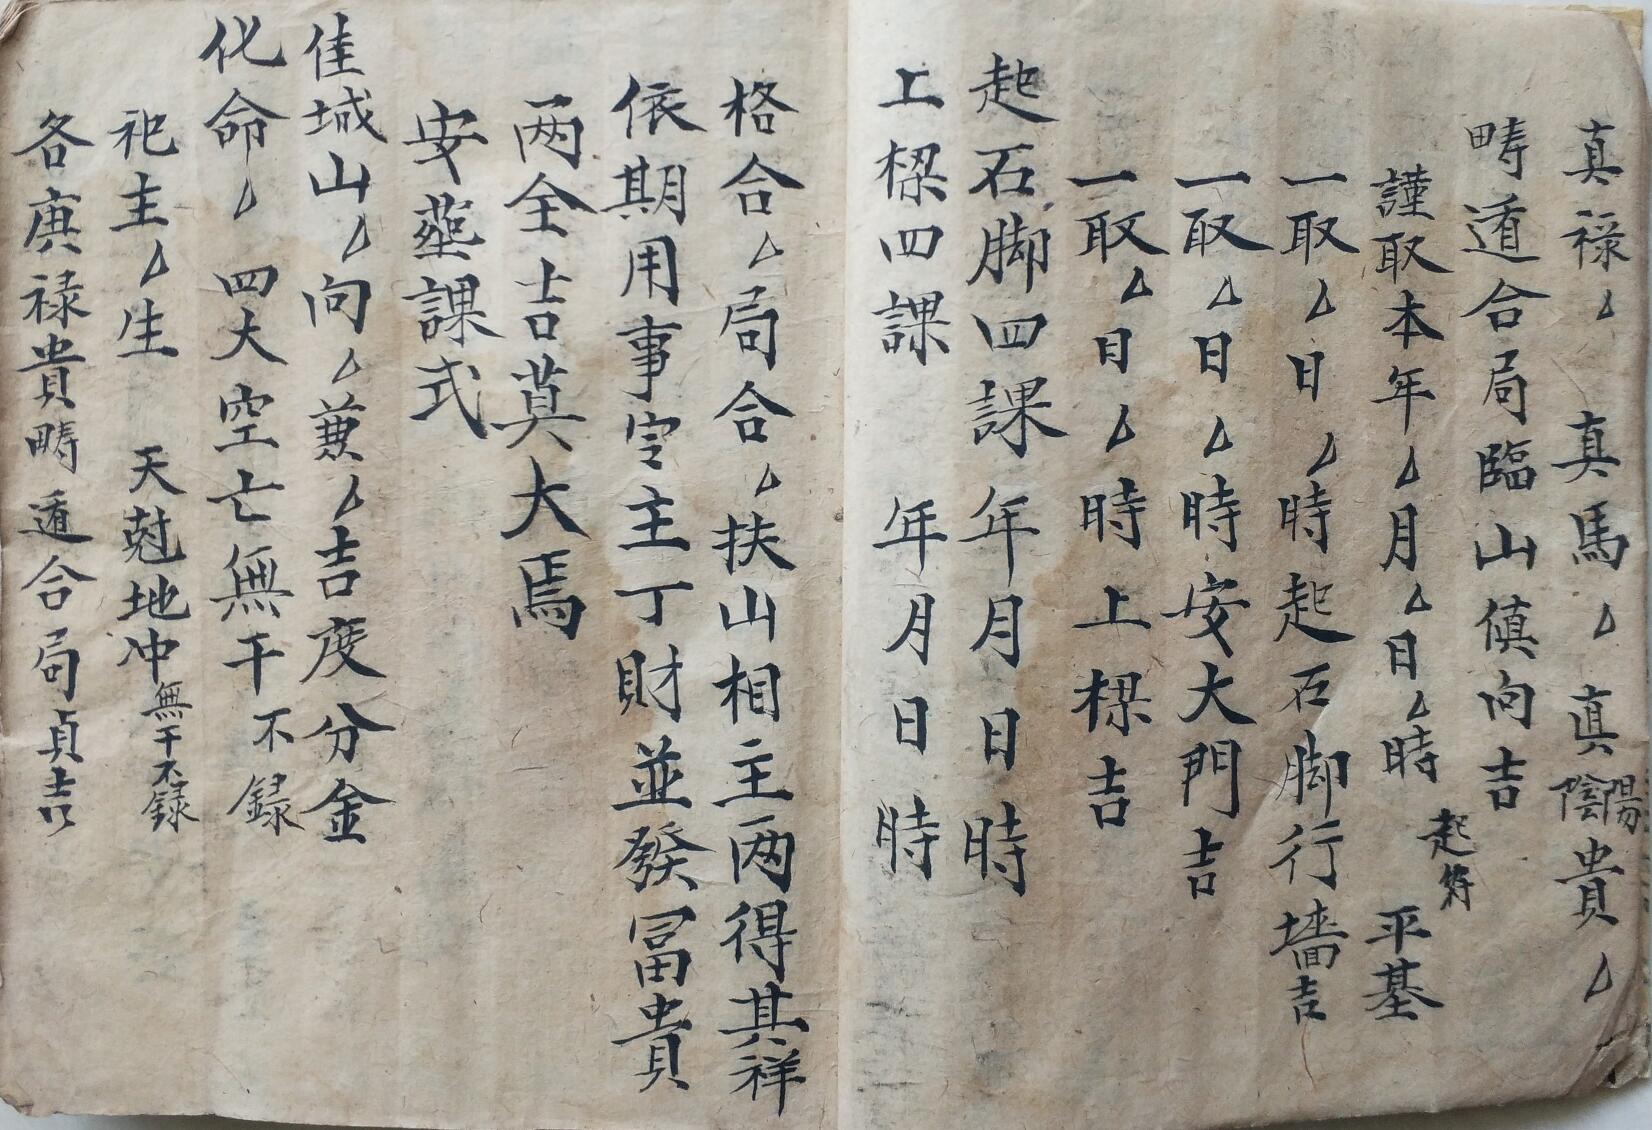 真禄厶 真馬厶 真陰陽貴厶
疇遁合局臨山傎向吉
謹取本年厶月厶日厶時起符平基
一取厶日厶時起石脚行墻吉
一取厶日厶時安大門吉
一取厶日厶時上樑吉
起石脚四課 年月日時
上樑四課 年月日時
格合厶局合厶扶山相主两得其祥
依期用事主丁財並發冨貴
两全吉莫大焉
安塟課式
佳城山厶向厶兼厶吉度分金
化命厶 四大空亡無干不録
祀主厶生 天尅地冲無干不録
各庚禄貴疇遁合局貞吉